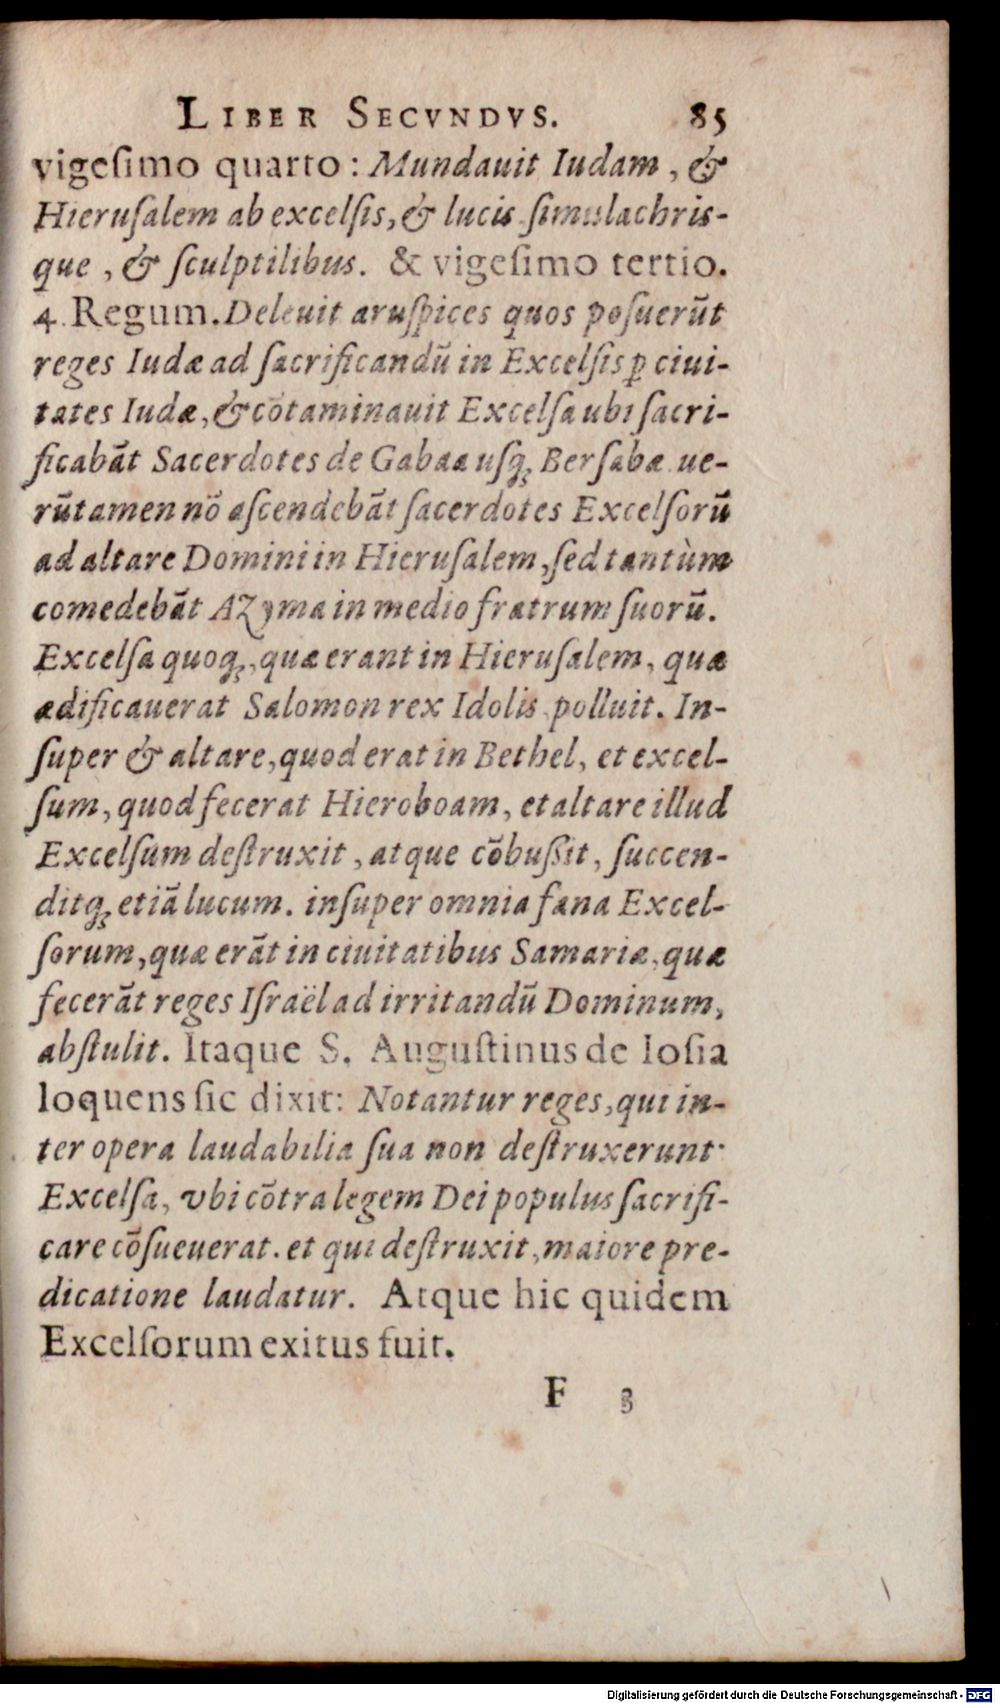 LIBER SECVNDVS. 85
vigeſimo quarto: Mundauit Iudam, &
Hieruſalem ab excelſis, & lucis ſimulachris-
que, & ſculptilibus. & vigeſimo tertio.
4. Regum. Deleuit aruſpices quos poſuerũt
reges Iudæ ad ſacrificandũ in Excelſis ꝑ ciui-
tates Iudæ, & cõtaminauit Excelſa ubi ſacri-
ficabãt Sacerdotes de Gabaa uſqꝫ Berſabæ. ue-
rũtamen nõ aſcendebãt ſacerdotes Excelſorũ
ad altare Domini in Hieruſalem, ſed tantùm
comedebãt Azyma in medio fratrum ſuorũ.
Excelſa quoqꝫ, quæ erant in Hieruſalem, quæ
ædificauerat Salomon rex Idolis polluit. In-
ſuper & altare, quod erat in Bethel, et excel-
ſum, quod fecerat Hieroboam, et altare illud
Excelſum deſtruxit, atque cõbußit, ſuccen-
ditqꝫ etiã lucum. inſuper omnia fana Excel-
ſorum, quæ erãt in ciuitatibus Samariæ, quæ
fecerãt reges Iſraël ad irritandũ Dominum,
abſtulit. Itaque S. Auguſtinus de Ioſia
loquens ſic dixit: Notantur reges, qui in-
ter opera laudabilia ſua non deſtruxerunt
Excelſa, vbi cõtra legem Dei populus ſacrifi-
care cõſueuerat. et qui deſtruxit, maiore præ-
dicatione laudatur. Atque hic quidem
Excelſorum exitus fuit.
F 3
Digitalisierung gefördert durch die Deutsche Forschungsgemeinschaft - DFG